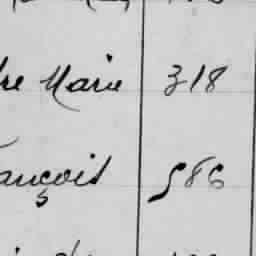 re Marie 318
ançois 586